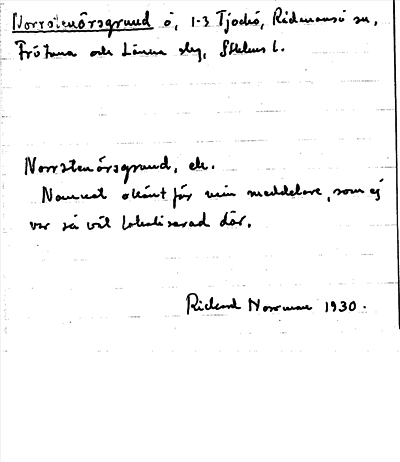 Norrstenörsgrund ö, 1-3 Tjockö, Rådmansö sn,
Frötuna och Länna skg, Sthlms l.
Norrstenörsgrund, ek.
Namnet okänt för min meddelare, som ej
var så väl lokaliserad där.
Rickard Norrman 1930.